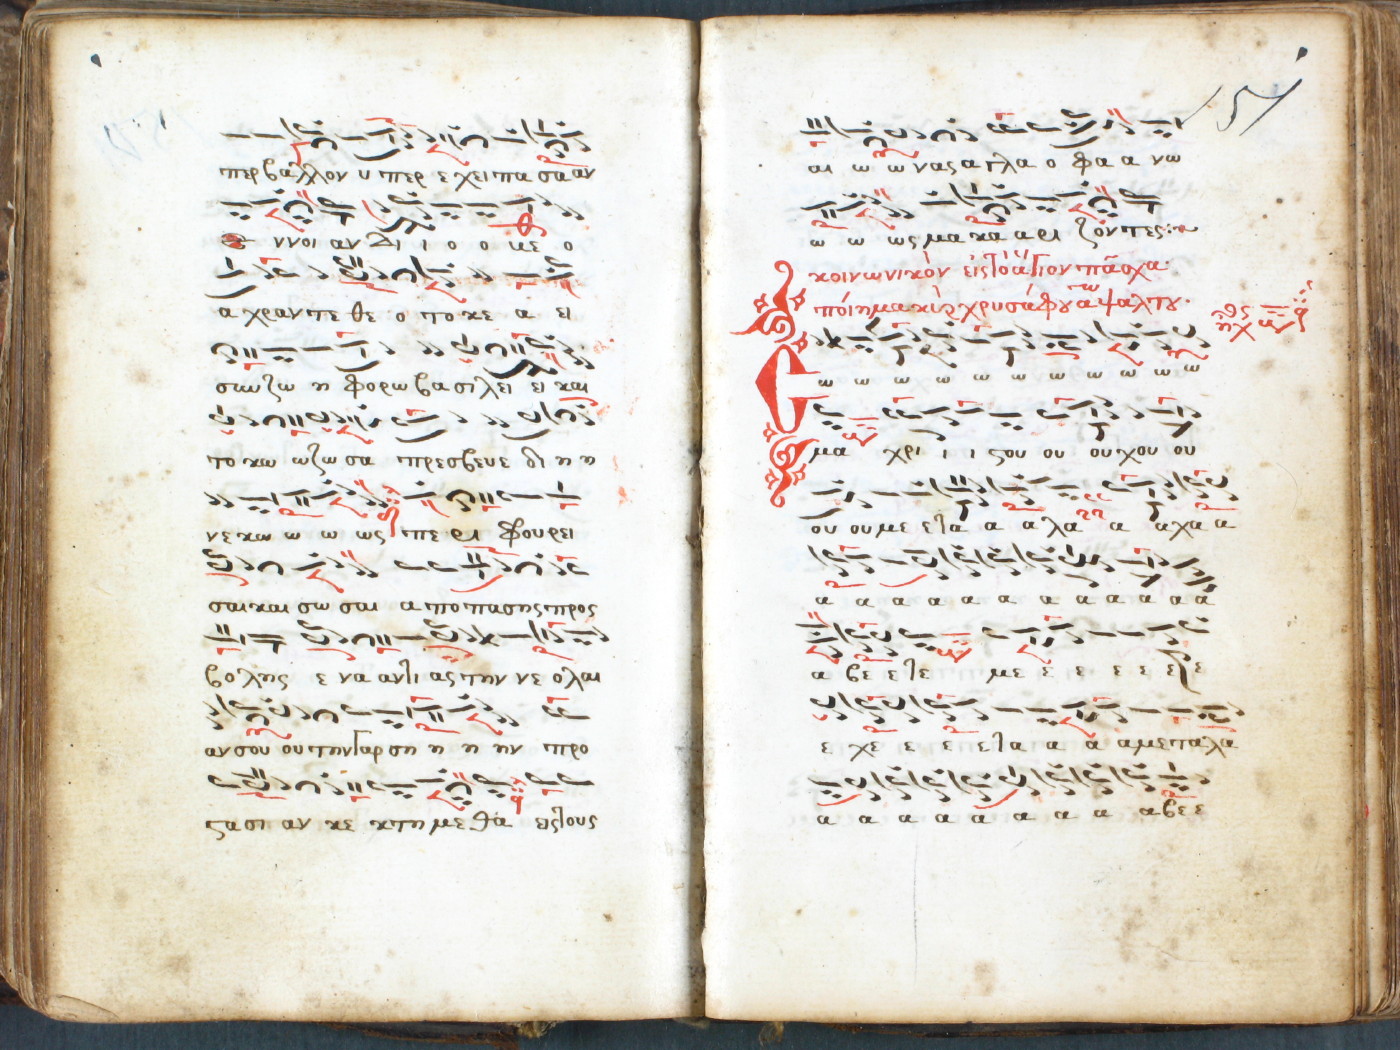 περβαλλον υπερ ε χει πα σα αν
ε ννοι αν Δι ι ο ο με ο
α χραν τε θε ο το κε α ει
σωωζω η φορω βασιλει ει και
το κω ωζω σα πρεσβευε δι η η
νε κω ω ω ως πε ρι φου ρει
σαι και σω σαι απο πασης προς
βο λης ε να αντι ας την νε ο λαι
αν σου ου την γαρ ση η η ην προ
στασι αν κε κτη με θα εις τους
151
αι ω ω νας α γλα ο φα α νω
ω ω ως μα κα α ρι ζον τες
κοινωνικὸν εἰς τὸ ἅγιον πᾶσχα
ποίημα κὺρ χρυσάφου τῶ ψάλτου
ἦχος
Σω ω ω ω ω ω ω ω ω ω ω
μα χρι ι ι στου ου ου χου ου
ου ου με ετα α α λα α α χα α
α α α α α α α α α α α
α βε ετε με ε ε ε ε ε ε
ε χε ε ε ετα α α α με τα λα
α α α α α α α α α βε ε